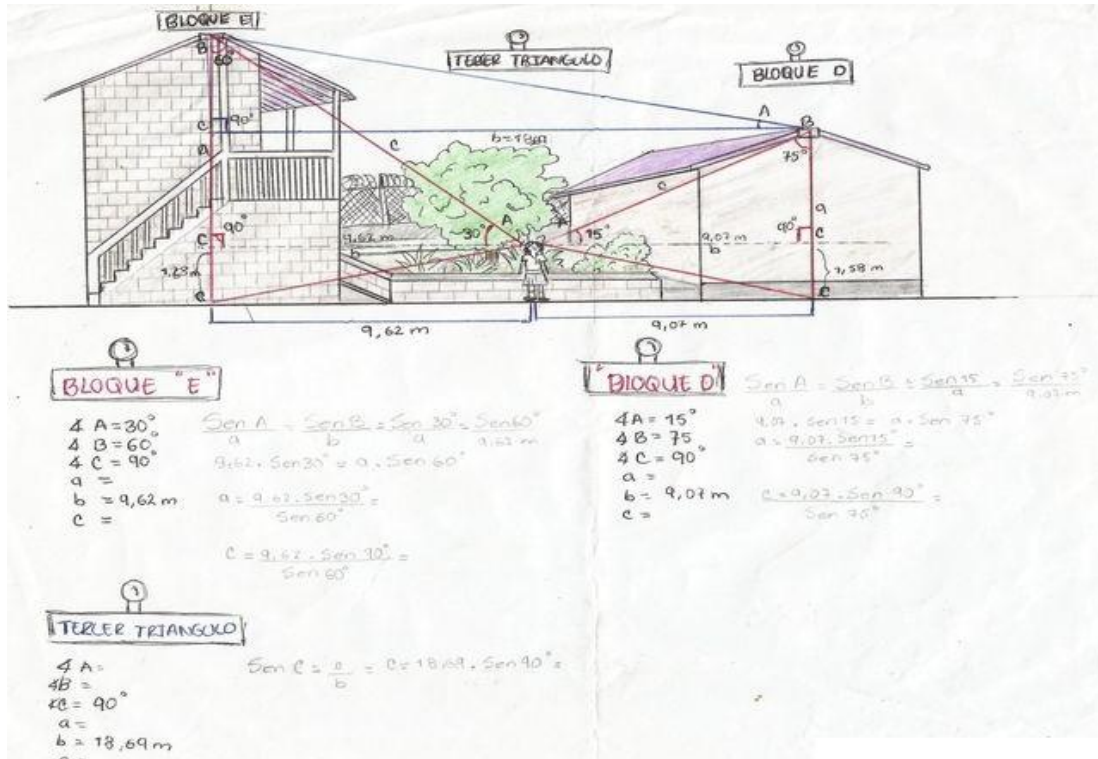 BLOQUE E
B
60°
TERCER TRIANGULO
BLOQUE D
C
90°
b=18,69
A
B
75°
c
c
a
a
C
90°
A
30°
A
15°
90°
C
9,62 m
b
9,07 m
b
1,58 m
C
C
9,62 m
9,07 m
BLOQUE "E"
∢ A=30°
∢ B=60°
∢ C=90°
a =
b = 9,62 m
c =
Sen A / a = Sen B / b = Sen 30° / a = Sen 60° / 9,62 m
9,62 . Sen 30° = a . Sen 60°
a = 9,62 . Sen 30° / Sen 60° =
C = 9,62 . Sen 90° / Sen 60° =
"BLOQUE D"
∢ A = 15°
∢ B = 75
∢ C = 90°
a =
b = 9,07 m
c =
Sen A / a = Sen B / b = Sen 15 / a = Sen 75° / 9,07 m
9,07 . Sen 15 = a . Sen 75°
a = 9,07 . Sen 15° / Sen 75° =
C = 9,07 . Sen 90° / Sen 75° =
TERCER TRIANGULO
∢ A =
∢B =
∢C = 90°
a =
b = 18,69 m
Sen C = c / b = C = 18,69 . Sen 90° =